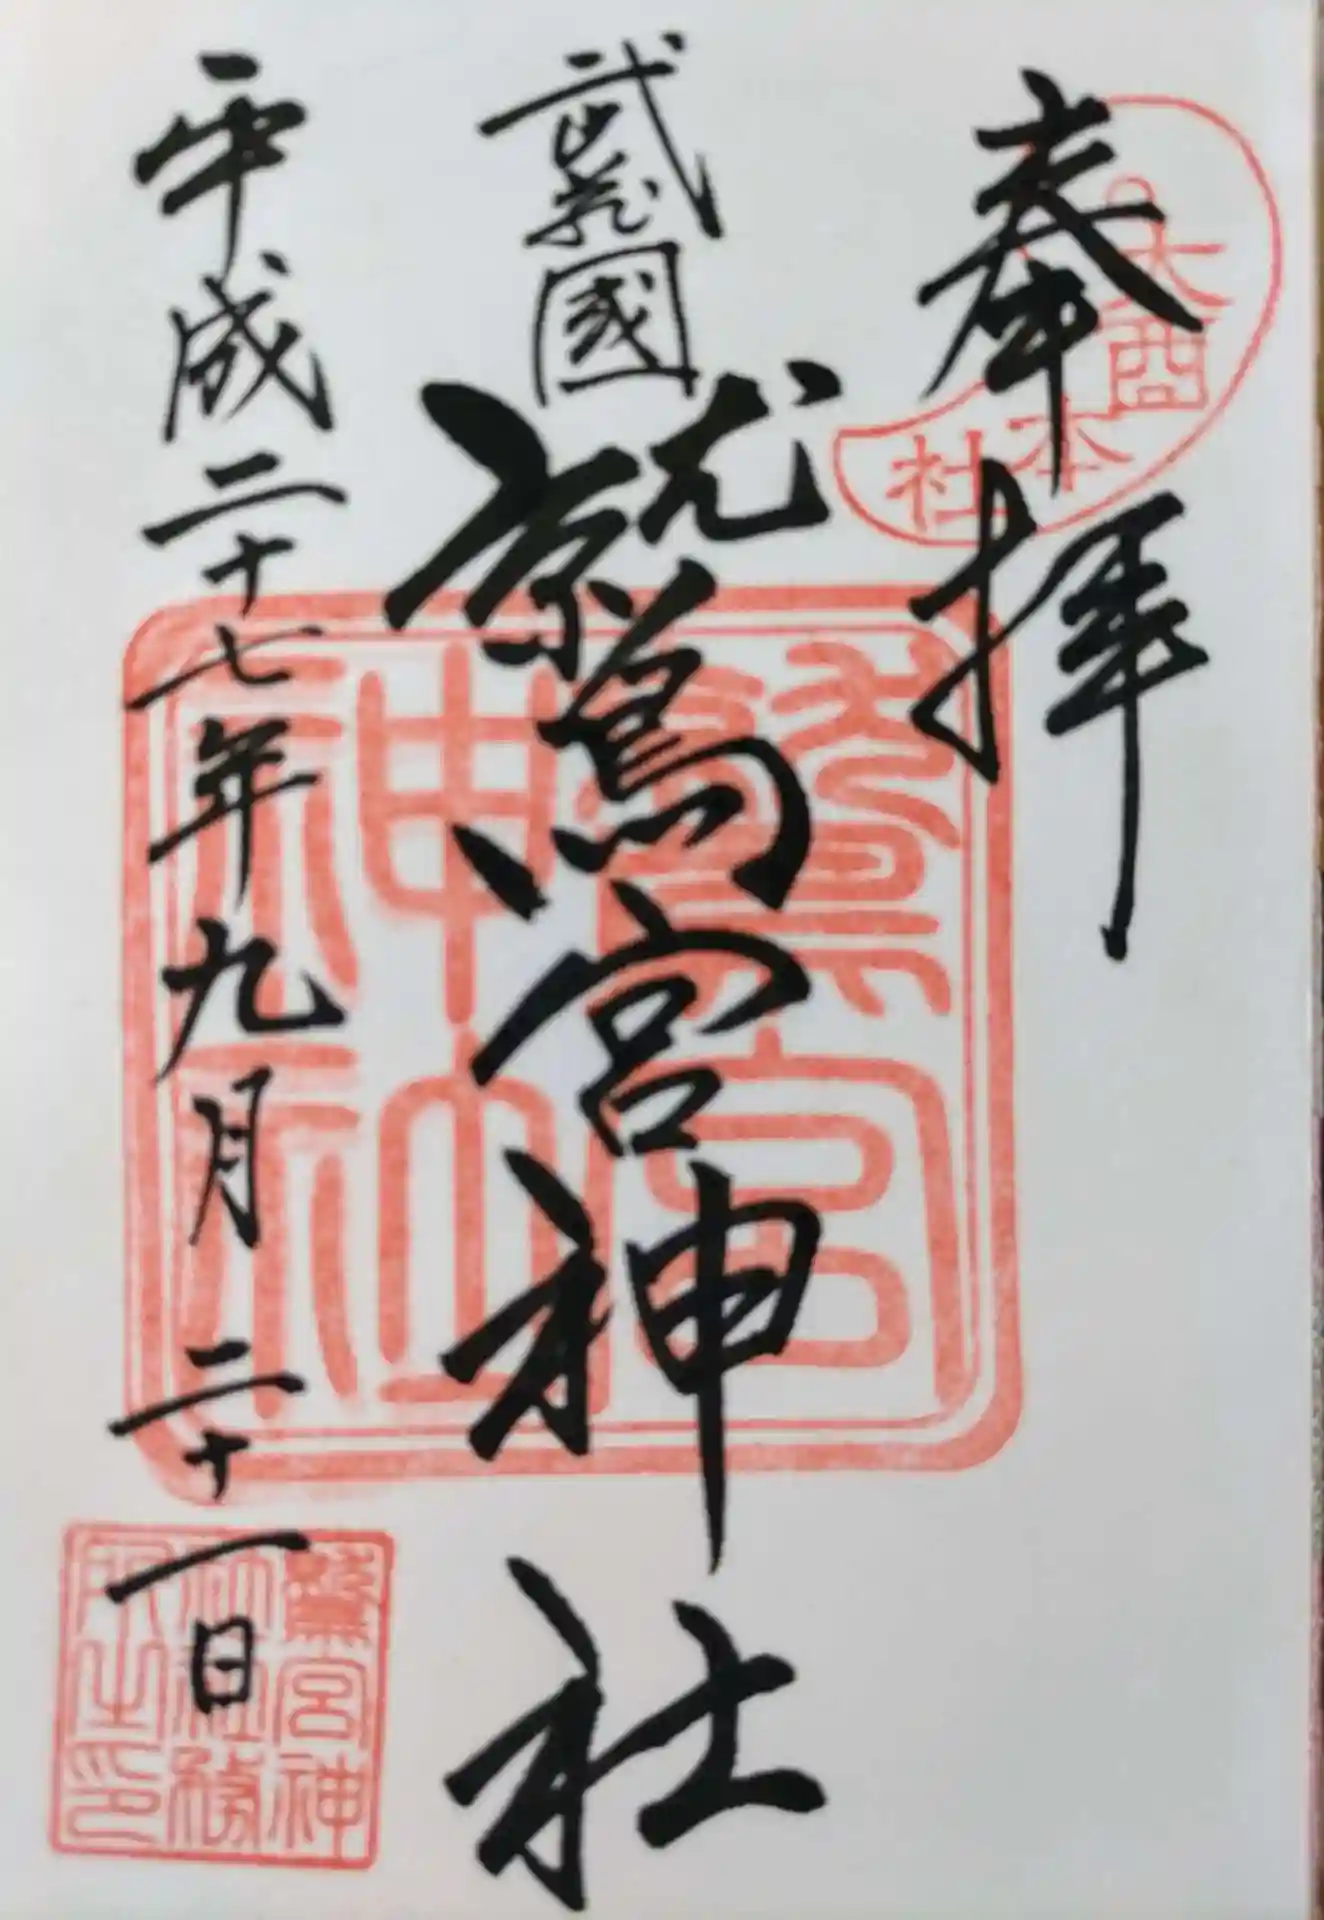 奉拝
大酉
本社
武蔵國
鷲宮神社
鷲宮
神社
平成二十七年九月二十一日
鷲宮神
社社務
所之印